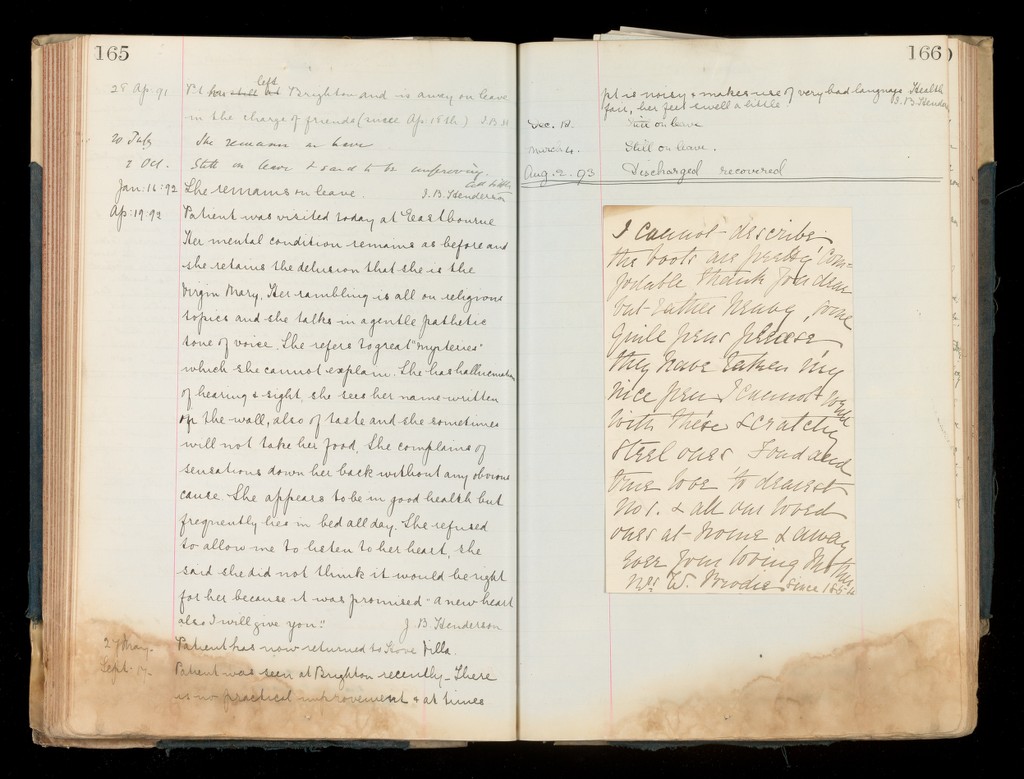 165
28 Ap. 91 Pt has left Brighton and is away on leave
in the charge of friends (since Ap. 18th) J.B.H
20 July She remains on leave
2 Oct. Still on leave & said to be improving.
Jan: 16: 92 She remains on leave. J. B. Henderson
Ap: 19 92 Patient was visited today at Eastbourne
Her mental condition remains as before and
she retains the delusion that she is the
Virgin Mary. Her rambling is all on religious
topics and she talks in a gentle pathetic
tone of voice. She refers to great "mysteries"
which she cannot explain. She has hallucinations
of hearing & sight, she sees her name written
on the wall, also of taste and she sometimes
will not take her food. She complains of
sensations down her back without any obvious
cause She appears to be in good health but
frequently lies in bed all day. She refused
to allow me to listen to her heart, she
said she did not think it would be right
for her because it was promised "a new heart
also I will give you". J. B. Henderson
27 May. Patient has now returned to Hove Villa.
Sept: Patient was seen at Brighton recently - There
is no practical improvement & at times
166
pt is noisy & makes use of very bad language Health
fair, her feet swell a little. J. B. Henderson
Dec. Still on leave
March 4. Still on leave.
Aug. 2. 93 Discharged recovered
I cannot describe
the boots are pretty Com-
fortable thank you dear
but rather heavy, some
Quill pens please
they have taken my
nice pen I cannot write
with these scratchy
steel ones Fond and
true love to dearest
No 1. & all our loved
ones at home & away
ever your loving Mother
Mrs W. Brodie since 185